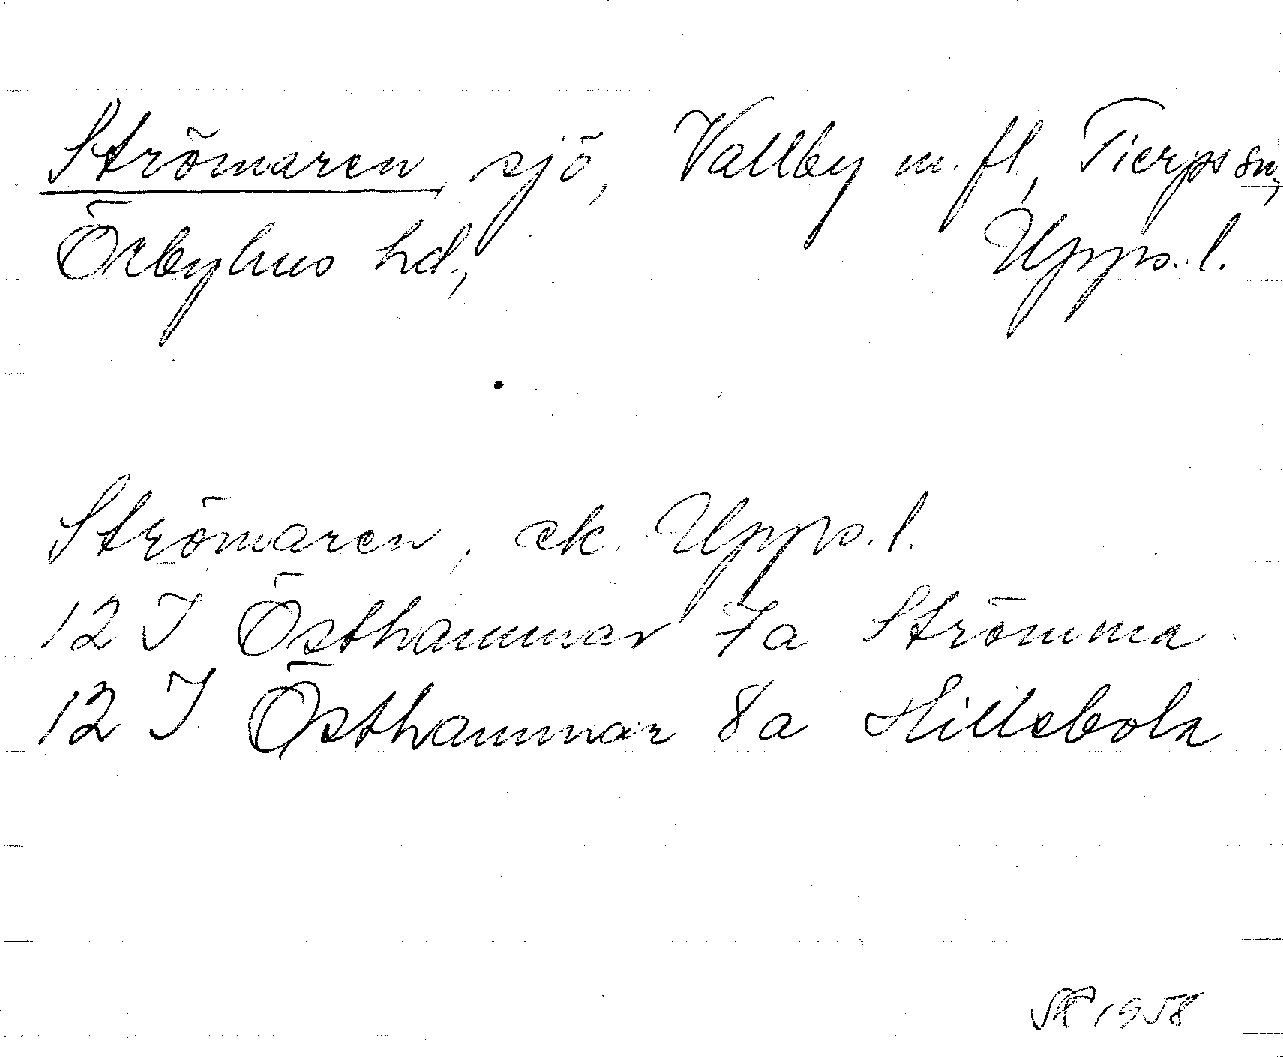 Strömaren, sjö, Vallby m. fl., Tierps sn,
Örbyhus hd, Upps. l.
Strömaren, ek. Upps. l.
12 I Östhammar 7a Strömma
12 I Östhammar 8a Hillebola
1958